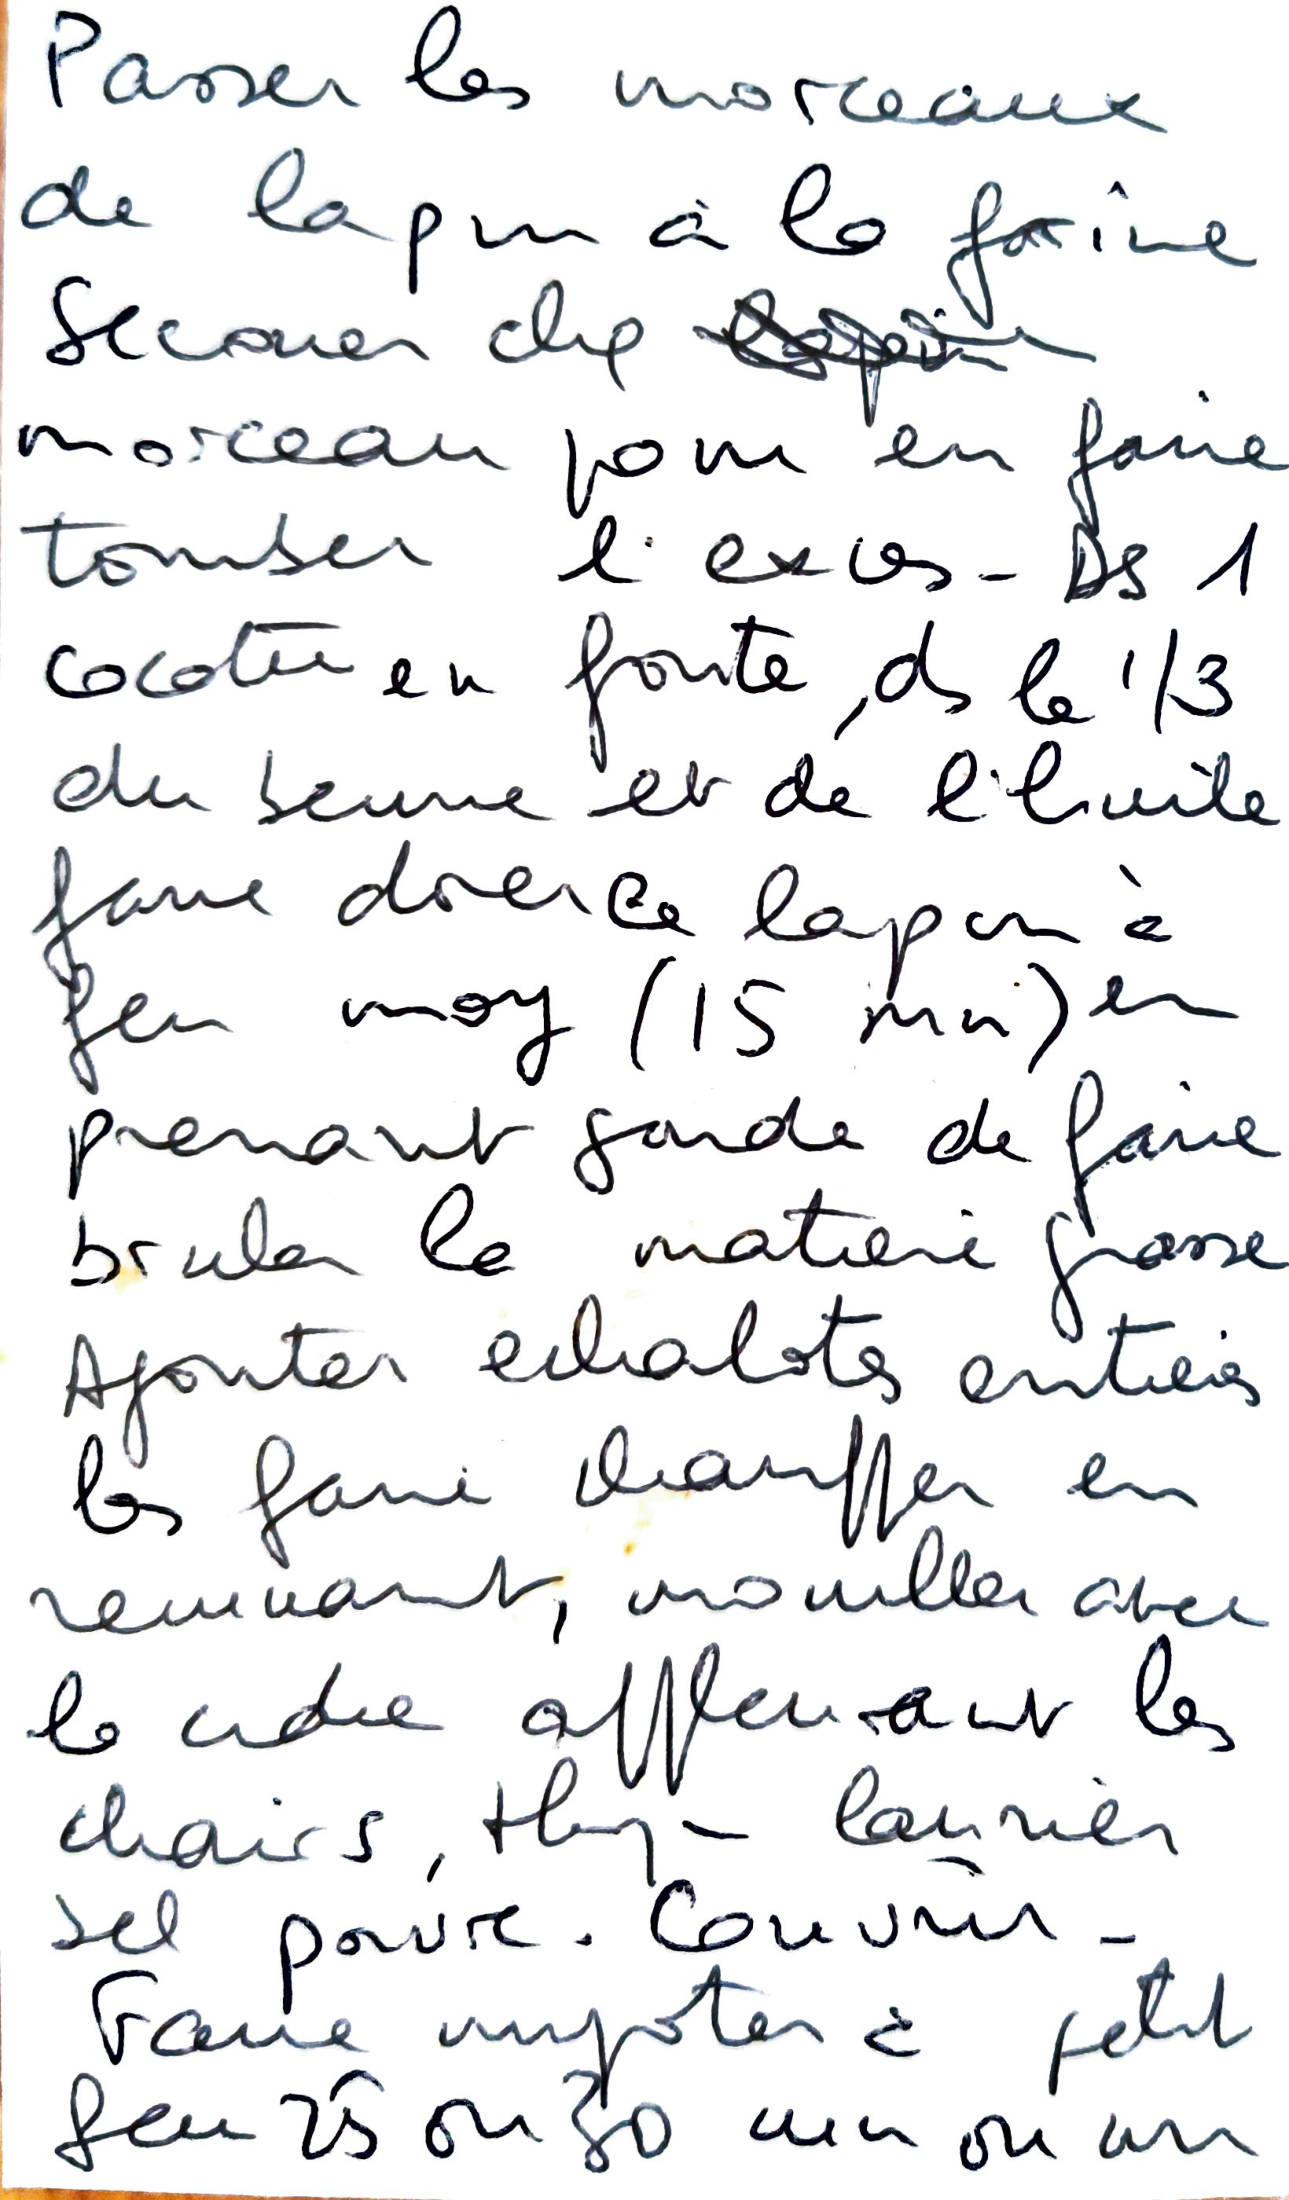 Passer les morceaux
de lapin à la farine
Secouer chq
morceau pour en faire
tomber l'exces - Ds 1
cocotte en fonte, ds le 1/3
du beurre et de l'huile
faire dorer le lapin à
feu moy (15 mn) en
prenant garde de faire
bruler la matiere grasse
Ajouter echalotes entieres
les faire chauffer en
remuant, mouiller avec
le cidre affleurant les
chairs, thym - laurier
sel poivre. Couvrir -
Faire mijoter à petit
feu 25 ou 30 mn ou un